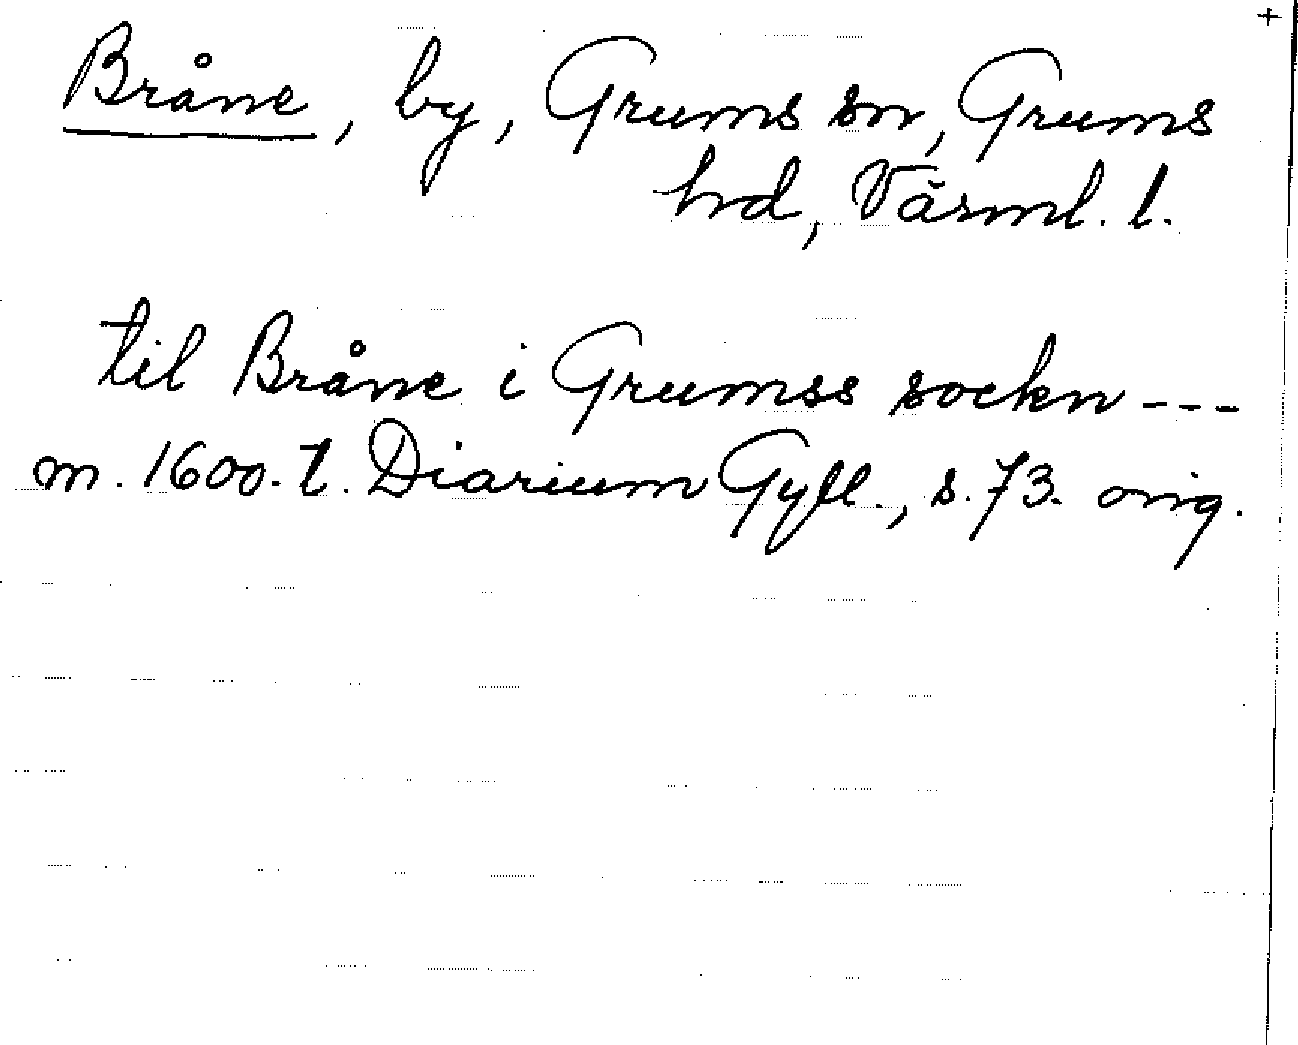 +
Bråne, by, Grums sn, Grums
hd, Värml. l.
til Bråne i Grumss sockn ---
m. 1600-t. Diarium Gyll., s. 73. orig.